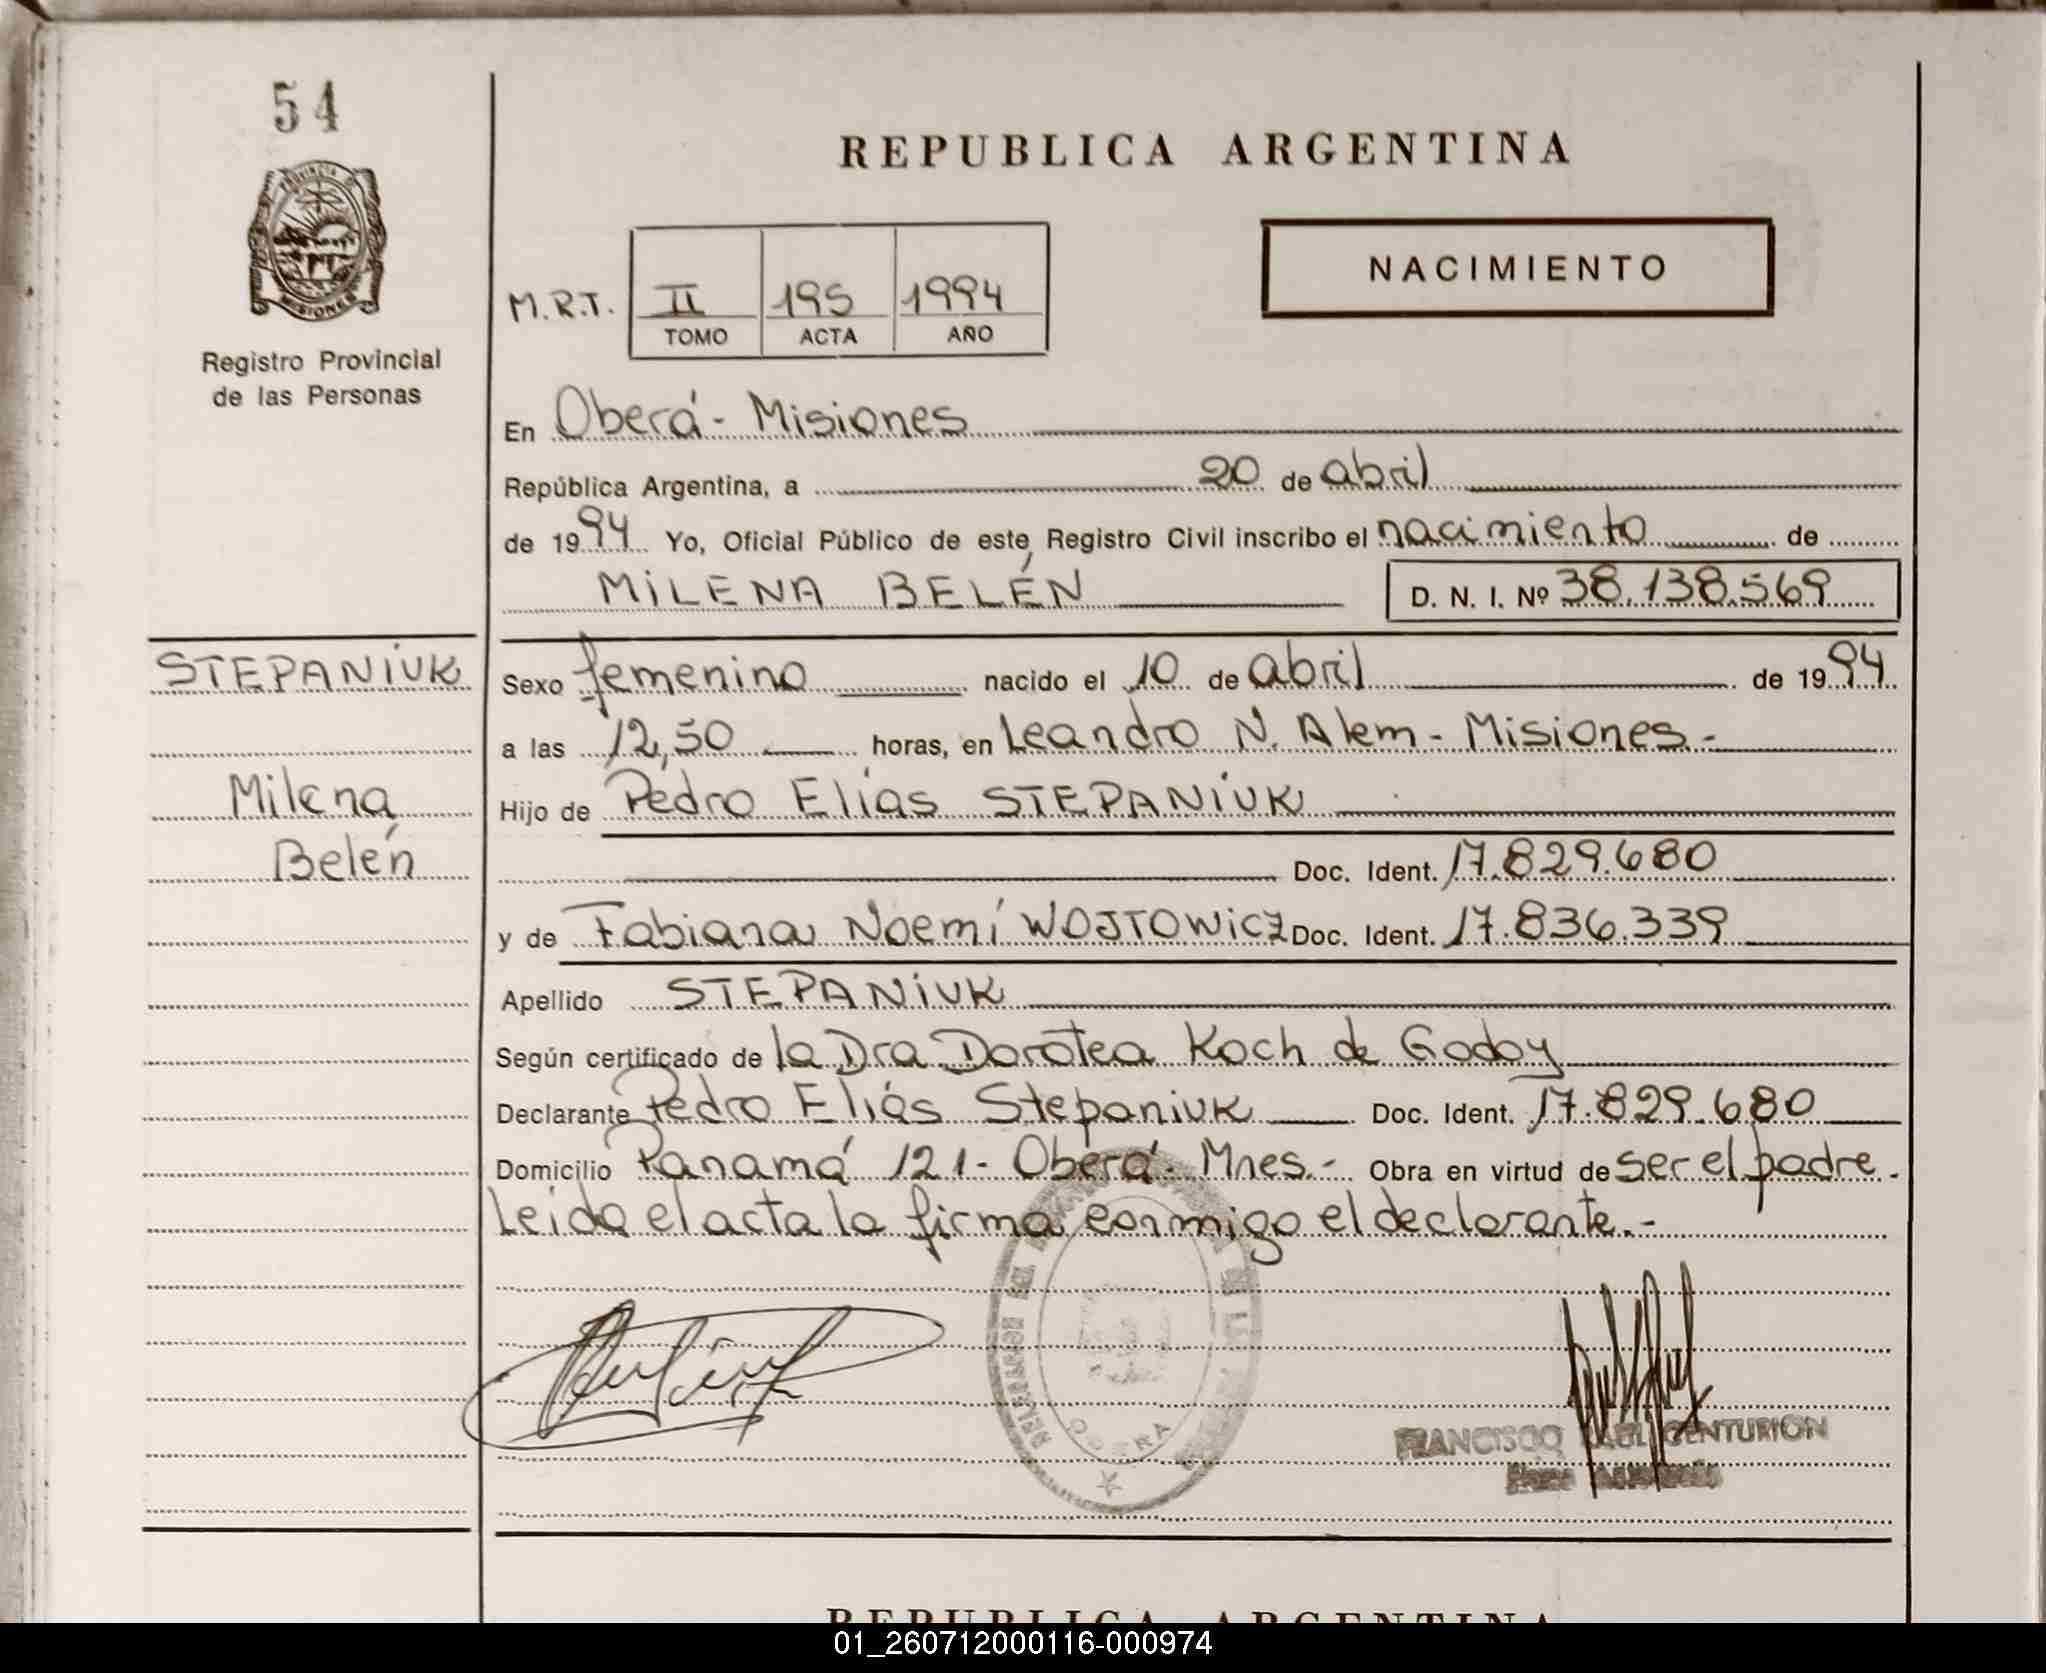 54
REPUBLICA ARGENTINA
PROVINCIA DE
MISIONES
NACIMIENTO
M.R.T. II 195 1994
TOMO ACTA AÑO
Registro Provincial
de las Personas
En Oberá - Misiones
República Argentina, a 20 de abril
de 1994 Yo, Oficial Público de este Registro Civil inscribo el nacimiento de
MILENA BELÉN D. N. I. Nº 38.138.569
STEPANIUK
Sexo femenino nacido el 10 de abril de 1994
a las 12,50 horas, en Leandro N. Alem - Misiones.-
Milena
Hijo de Pedro Elías STEPANIUK
Belén
Doc. Ident. 17.829.680
y de Fabiana Noemí WOJTOWICZ Doc. Ident. 17.836.339
Apellido STEPANIUK
Según certificado de la Dra Dorotea Koch de Godoy
Declarante Pedro Elías Stepaniuk Doc. Ident. 17.829.680
Domicilio Panamá 121- Oberá- Mnes.- Obra en virtud de ser el padre.
Leida el acta la firma conmigo el declarante.-
OBERA
FRANCISCO RAUL CENTURION
REPUBLICA ARGENTINA
01_260712000116-000974